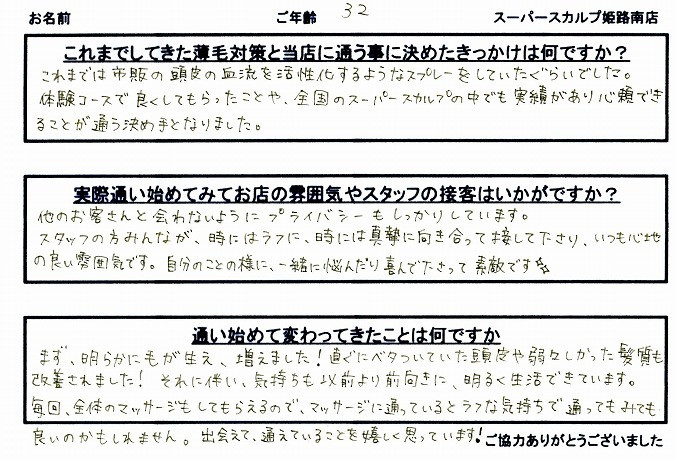 お名前 ご年齢 32 スーパースカルプ姫路南店
これまでしてきた薄毛対策と当店に通う事に決めたきっかけは何ですか?
これまでは市販の頭皮の血流を活性化するようなスプレーをしていたぐらいでした。
体験コースで良くしてもらったことや、全国のスーパースカルプの中でも実績があり心頼でき
ることが通う決め手となりました。
実際通い始めてみてお店の雰囲気やスタッフの接客はいかがですか?
他のお客さんと会わないようにプライバシーもしっかりしています。
スタッフの方みんなが、時にはラフに、時には真摯に向き合って接して下さり、いつも心地
の良い雰囲気です。自分のことの様に、一緒に悩んだり喜んで下さって素敵です☆
通い始めて変わってきたことは何ですか
まず、明らかに毛が生え、増えました!直ぐにベタついていた頭皮や弱々しかった髪質も
改善されました!それに伴い、気持ちも以前より前向きに、明るく生活できています。
毎回、全体のマッサージもしてもらえるので、マッサージに通っているとラフな気持ちで通ってもみても
良いのかもしれません。出会えて、通えていることを嬉しく思っています!
ご協力ありがとうございました